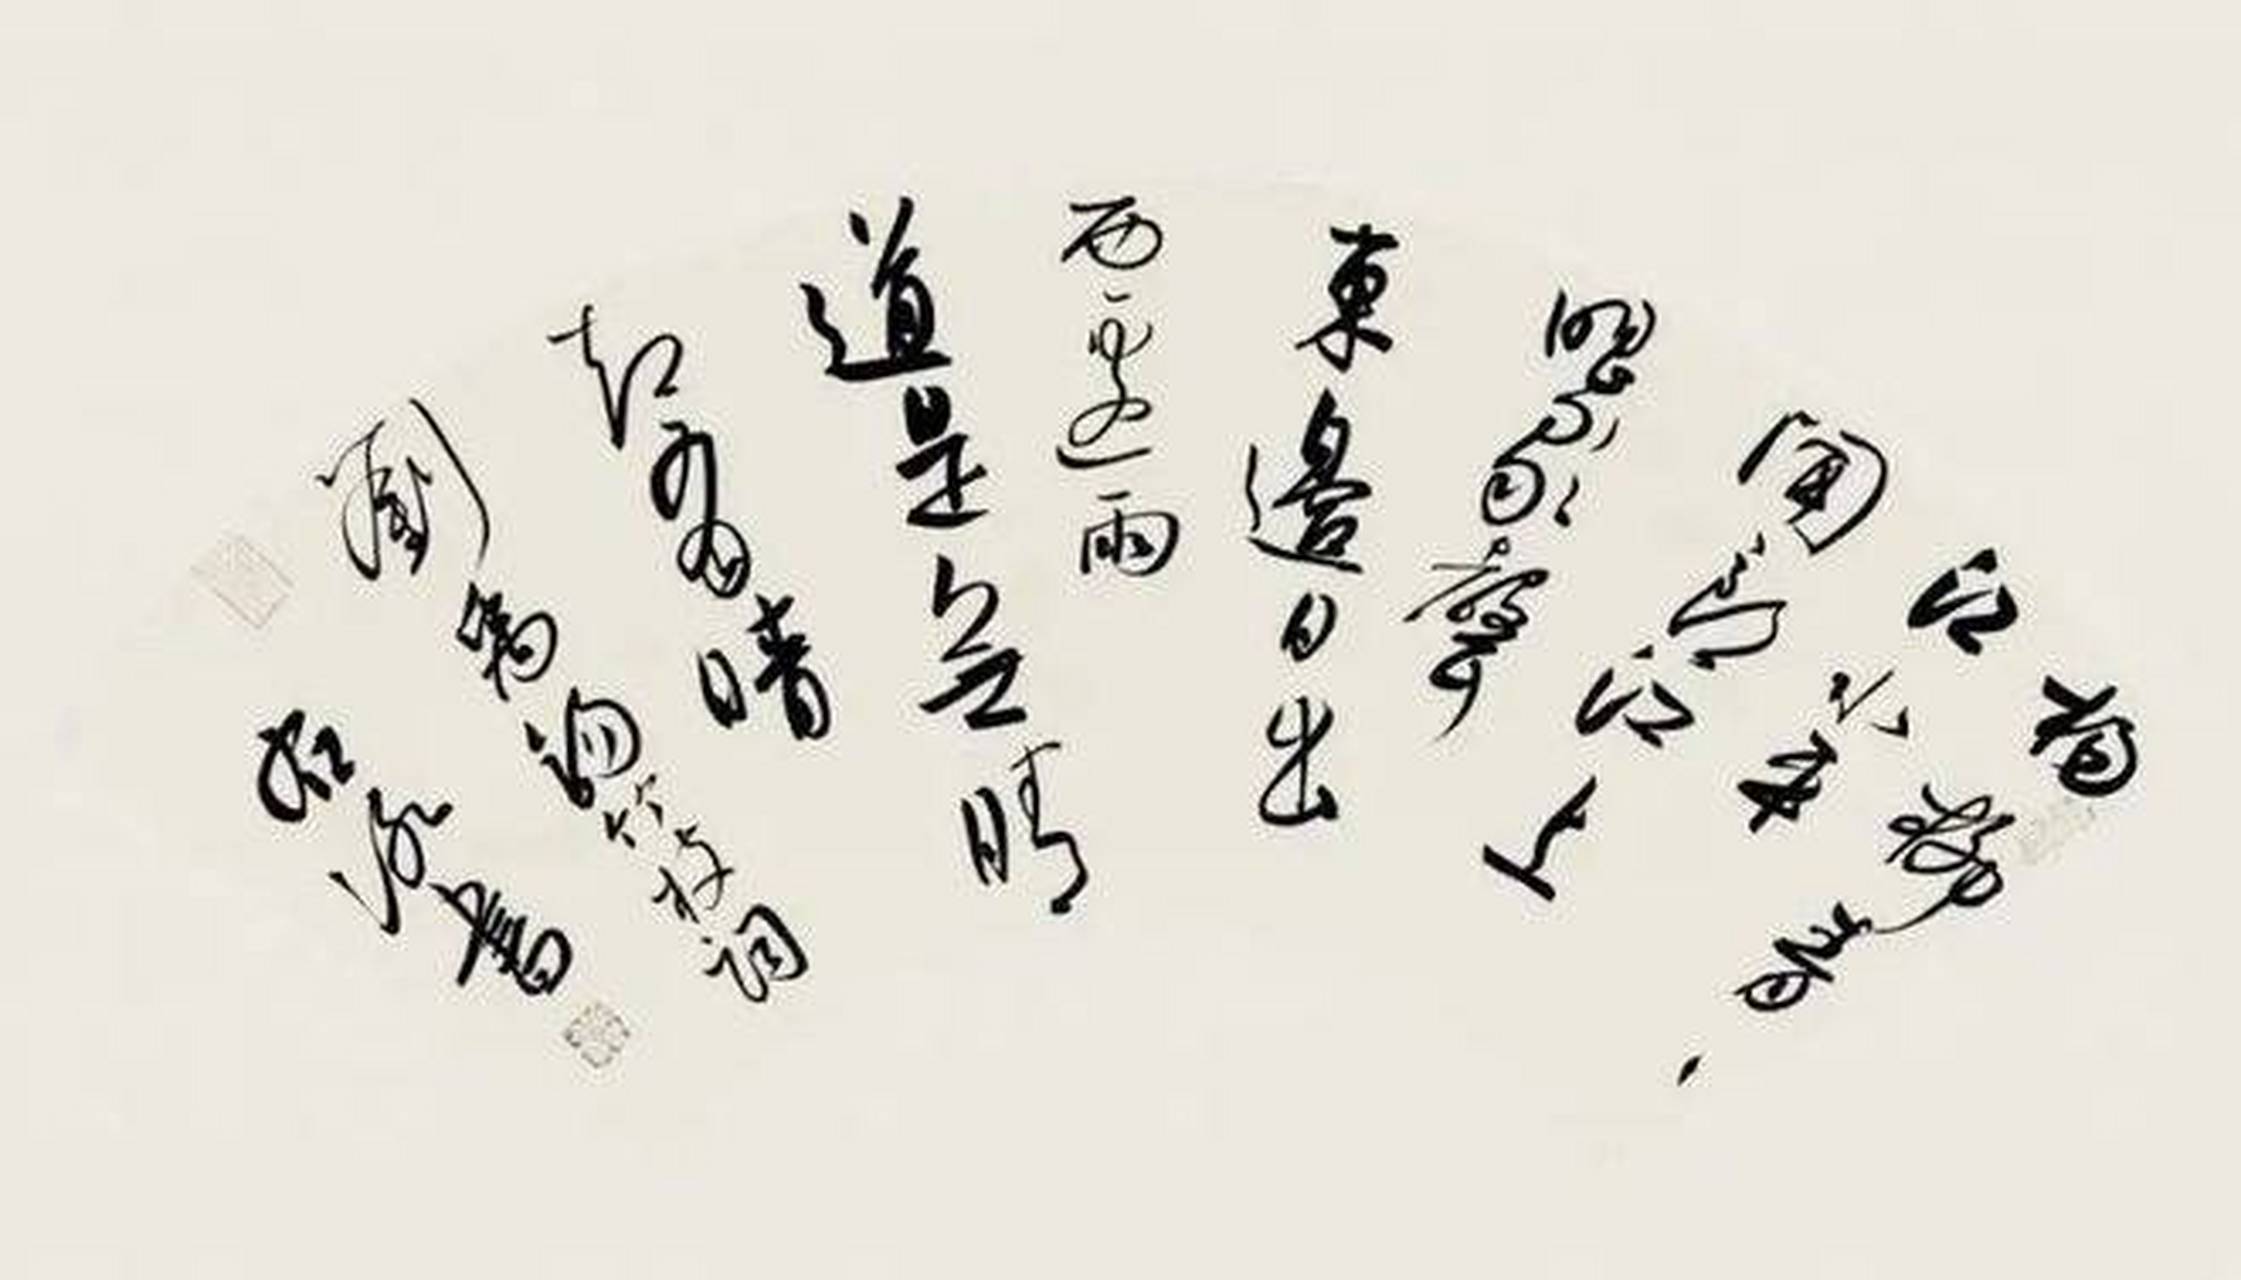 楊柳青、
江水平
聞郎江上
唱歌聲
東邊日出
西邊雨
道是無晴
却有晴
劉禹錫竹枝詞
書